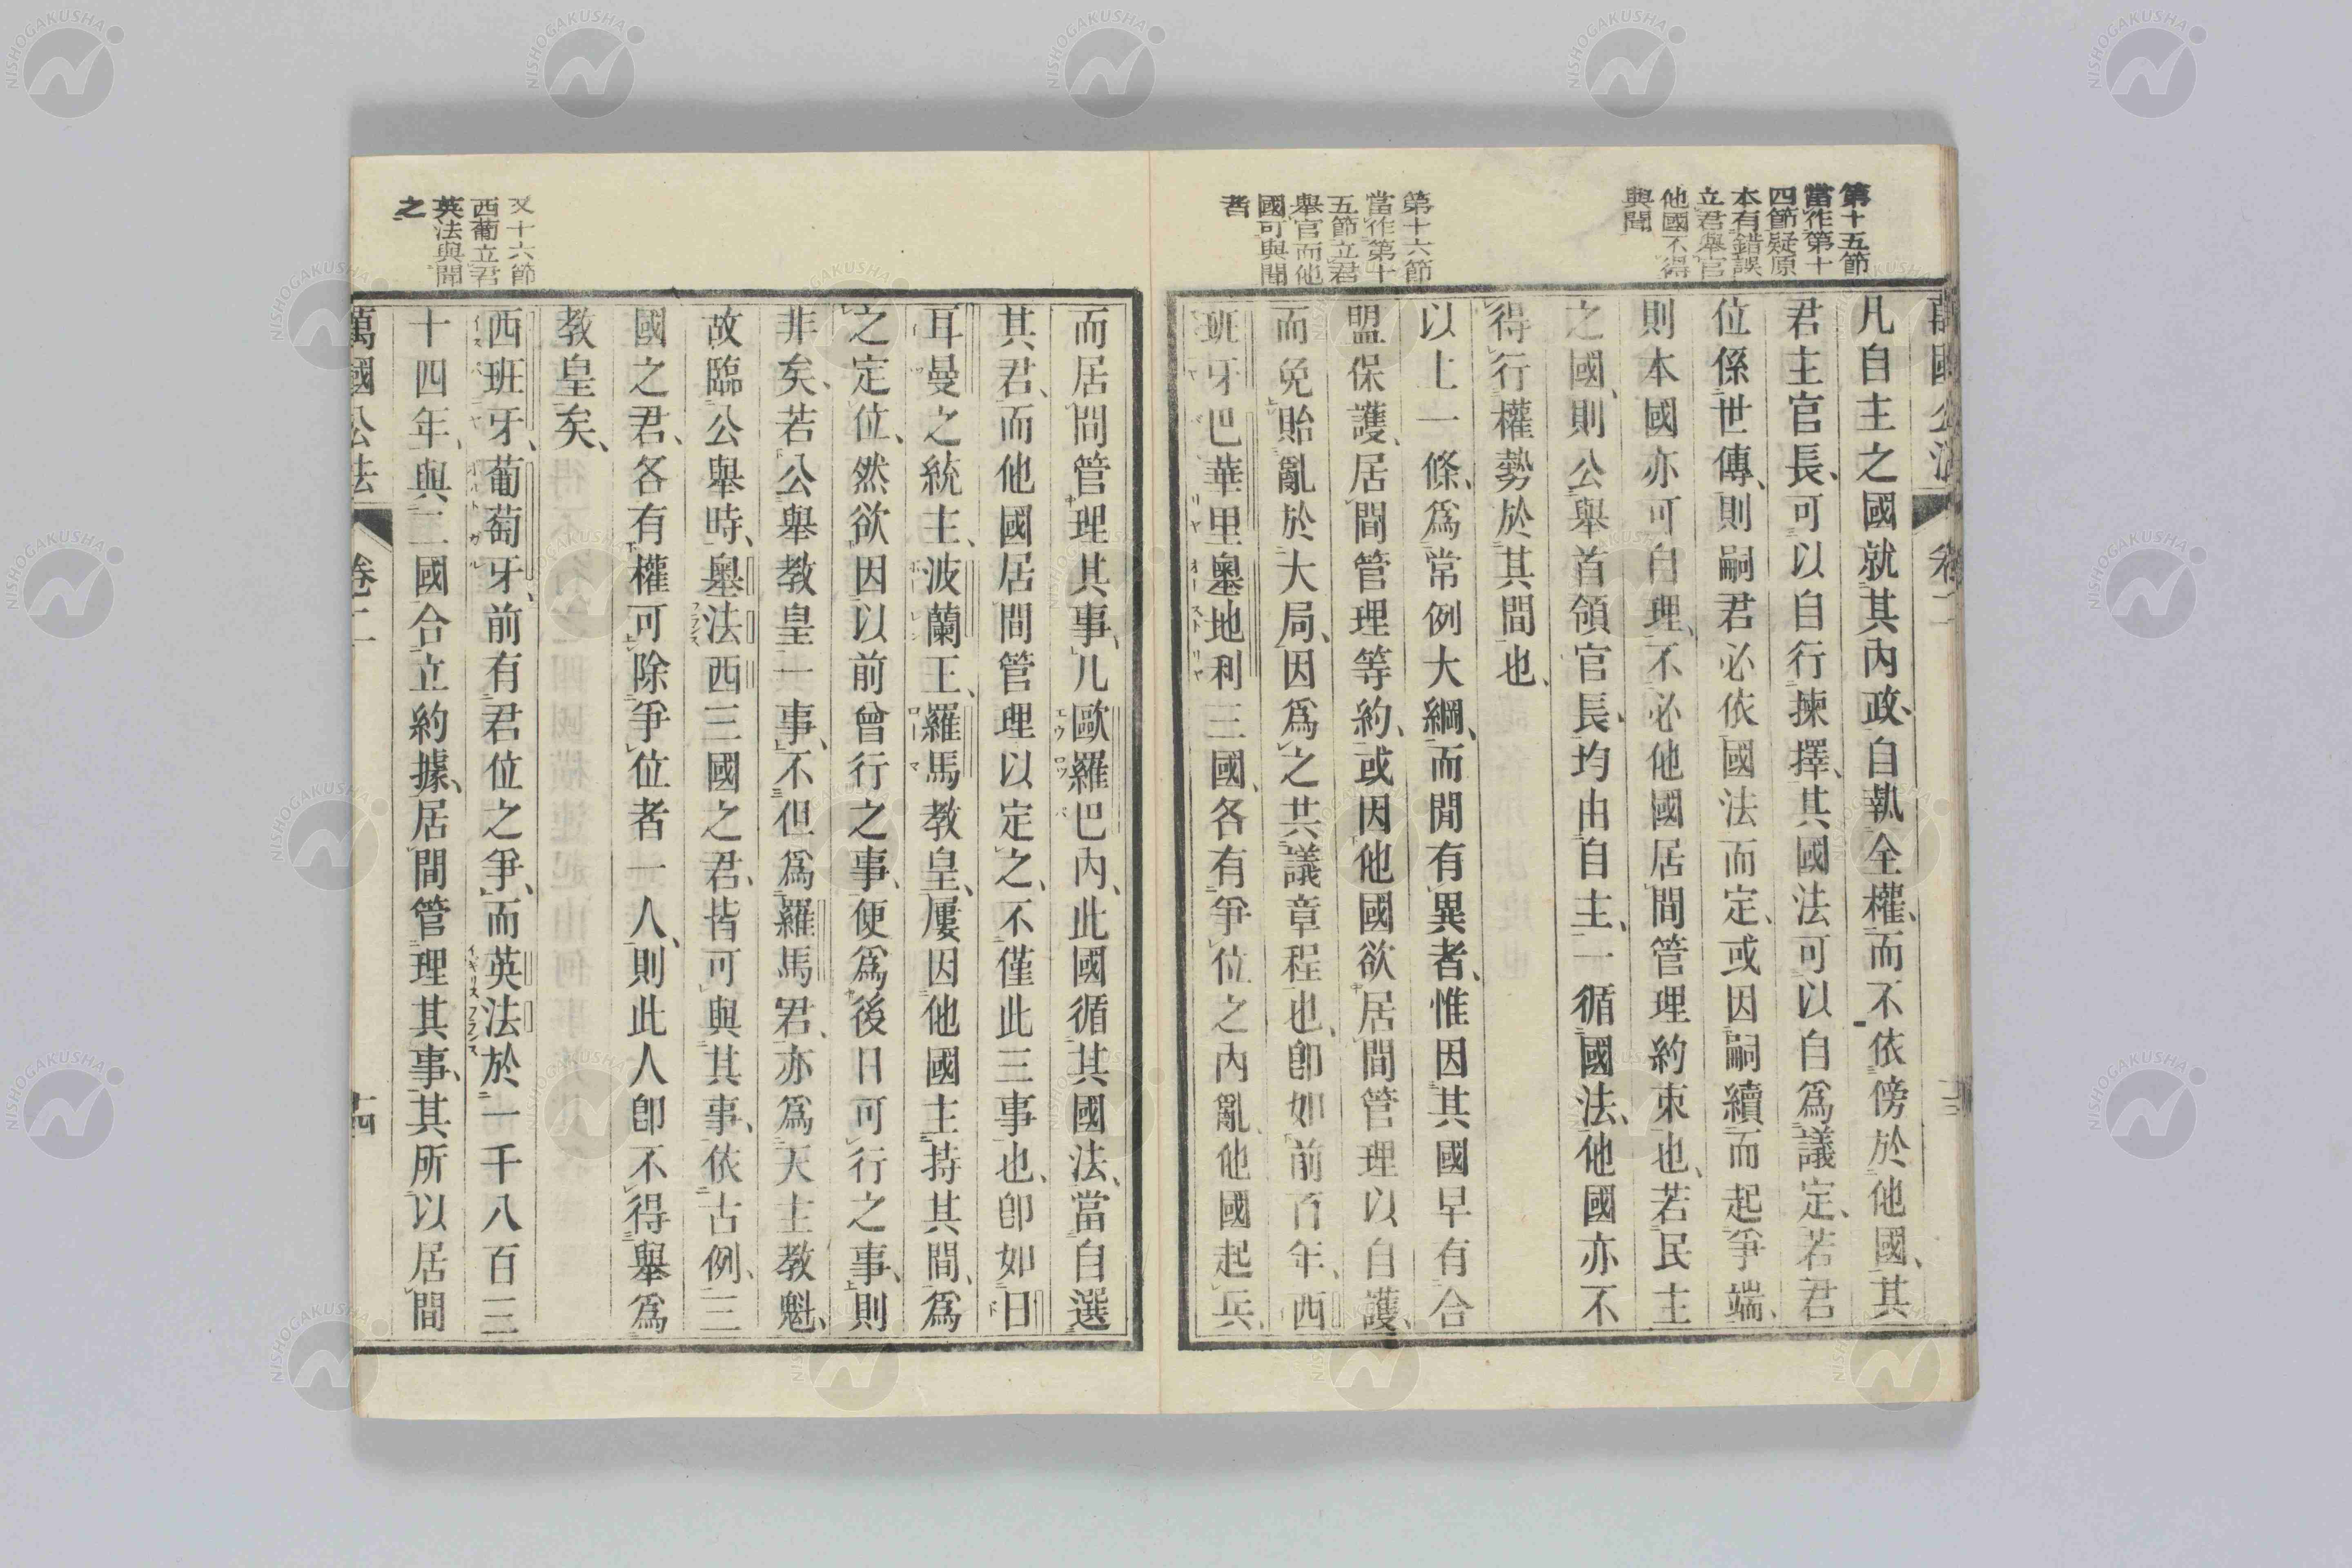 第十五節
當作第十
四節疑原
本有錯誤
立君舉官
他國不得
與聞
凡自主之國就其內政、自執全權、而不依傍於他國、其
君主官長、可以自行揀擇、其國法可以自爲議定、若君
位係世傳、則嗣君必依國法而定、或因嗣續而起爭端、
則本國亦可自理、不必他國居間管理約束也、若民主
之國、則公舉首領官長、均由自主、一循國法、他國亦不
得行權勢於其間也、
第十六節
當作第十
五節立君
舉官而他
國可與聞
者
以上一條、爲常例大綱、而間有異者、惟因其國早有合
盟保護、居間管理等約、或因他國欲居間管理以自護、
而免貽亂於大局、因爲之共議章程也、卽如前百年、西
班牙巴華里奧地利三國、各有爭位之內亂、他國起兵、
而居間管理其事、凡歐羅巴內、此國循其國法、當自選
其君、而他國居間管理以定之、不僅此三事也、卽如日
耳曼之統主、波蘭王、羅馬教皇、屢因他國主持其間、爲
之定位、然欲因以前曾行之事、便爲後日可行之事、則
非矣、若公舉教皇一事、不但爲羅馬君、亦爲天主教魁、
故臨公舉時、奧法西三國之君、皆可與其事、依古例、三
國之君、各有權可除爭位者一人、則此人卽不得舉爲
教皇矣、
又十六節
西葡立君
英法與聞
之
西班牙、葡萄牙、前有君位之爭、而英法於一千八百三
十四年、與二國合立約據、居間管理其事、其所以居間
萬國公法
卷二
十四
NISHOGAKUSHA